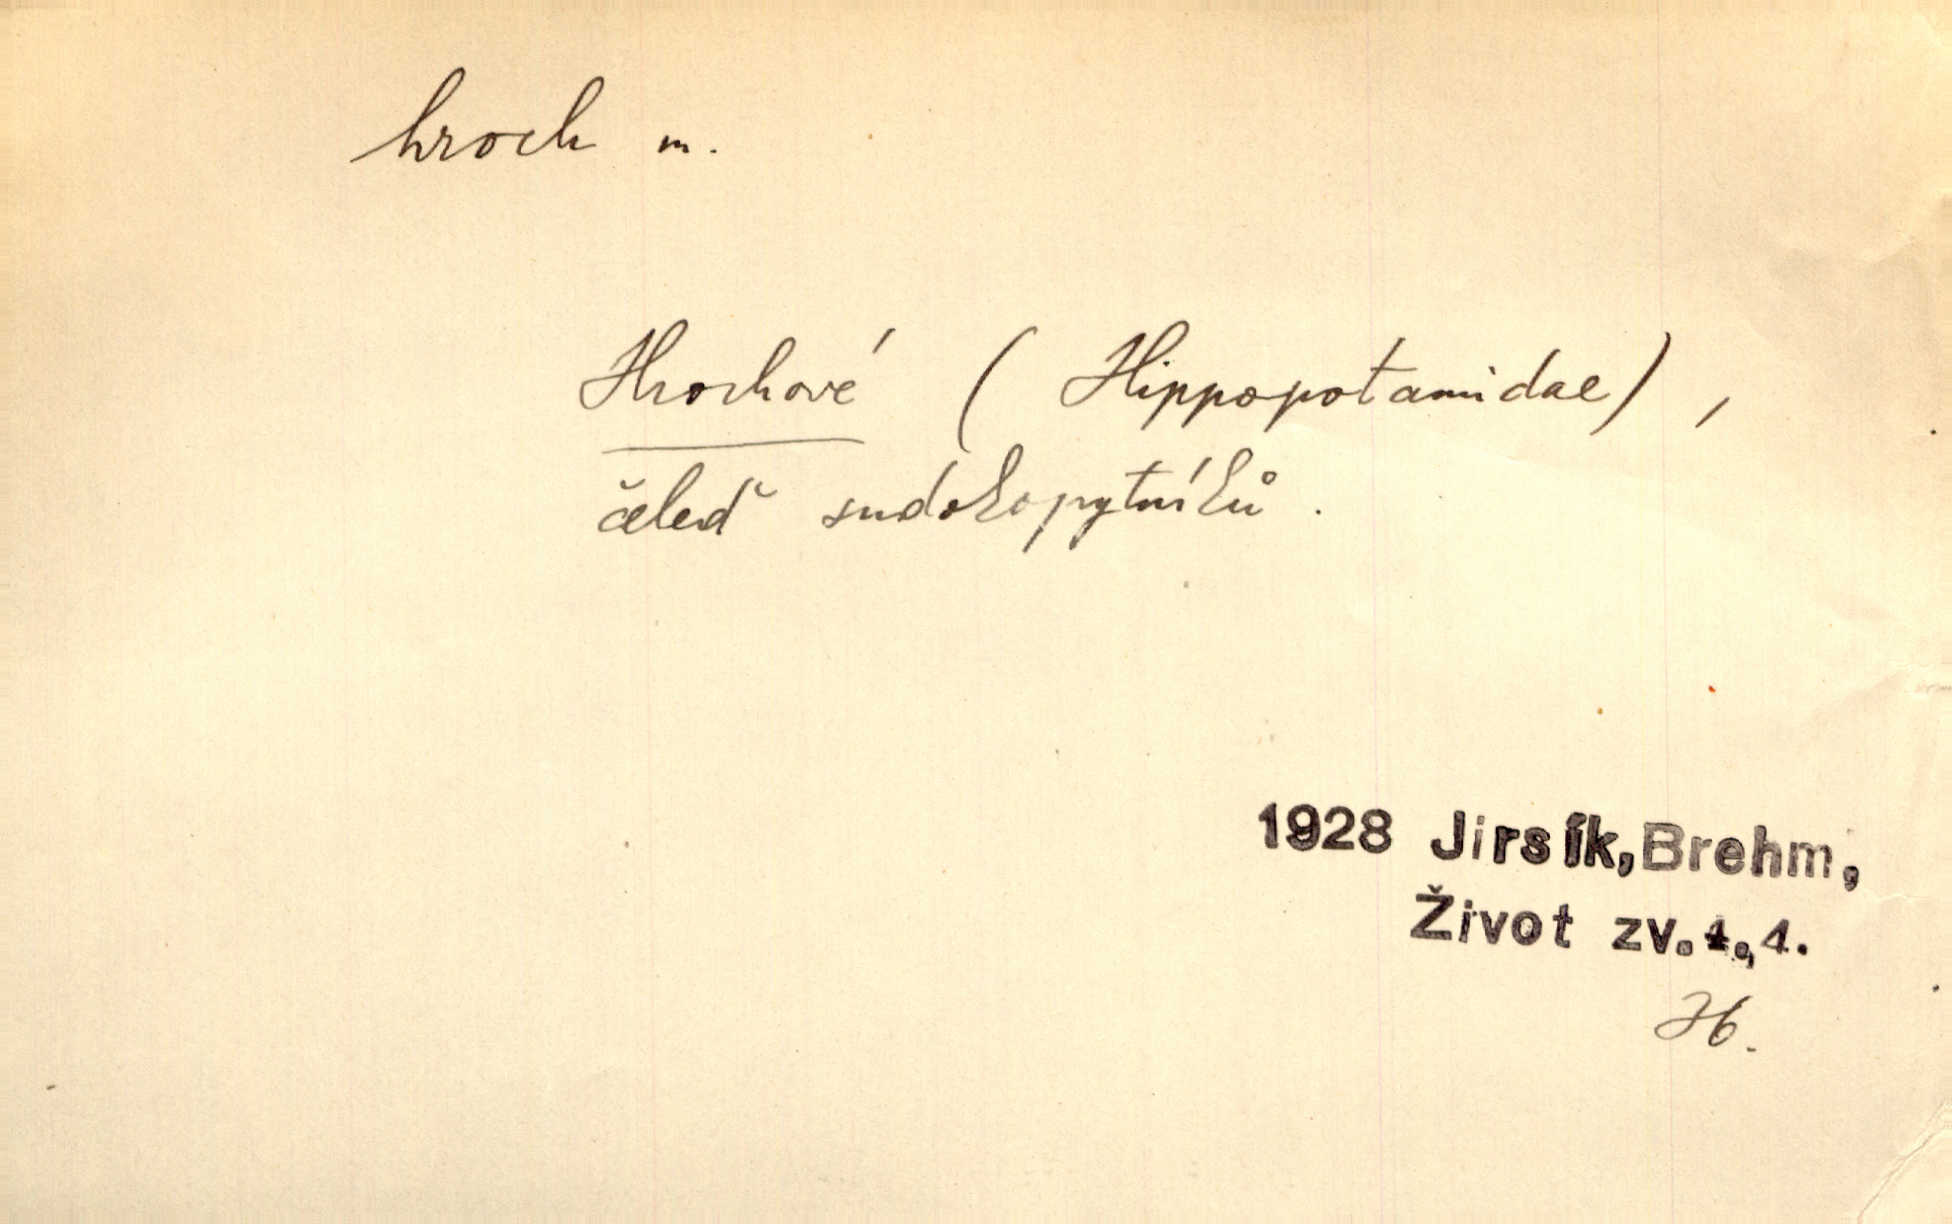 hroch m.
Hrochové (Hippopotamidae),
čeleď sudokopytníků.
1928 Jirsík, Brehm,
Život zv. 1., 4.
H.